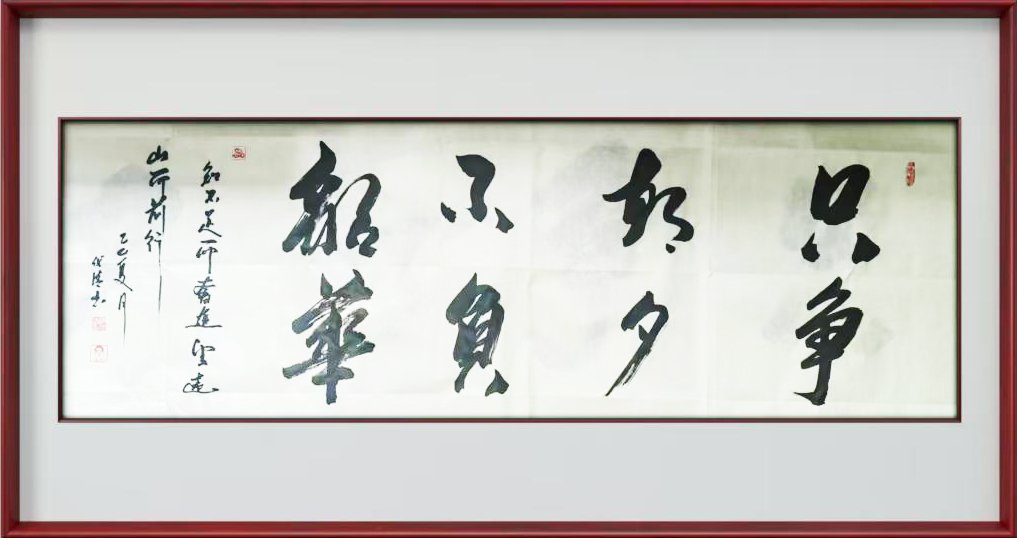 只争
朝夕
不负
韶华
知不足而奋进望远
山而前行
乙巳夏月